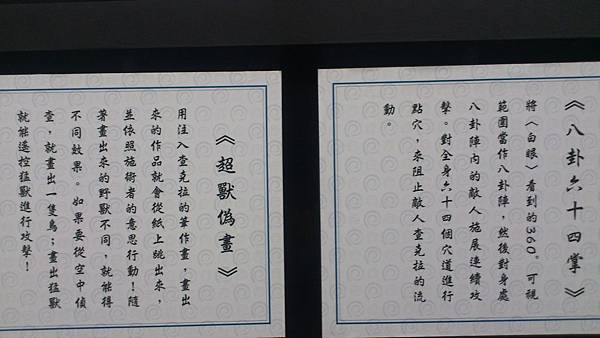 《八卦六十四掌》
將〈白眼〉看到的360°可視
範圍當作八卦陣，然後對身處
八卦陣內的敵人施展連續攻
擊。對全身六十四個穴道進行
點穴，來阻止敵人查克拉的流
動。
《超獸偽畫》
用注入查克拉的筆作畫，畫出
來的作品就會從紙上跳出來，
並依照施術者的意思行動！隨
著畫出來的野獸不同，就能得
不同效果。如果要從空中偵
查，就畫出一隻鳥；畫出猛獸
就能遙控猛獸進行攻擊！